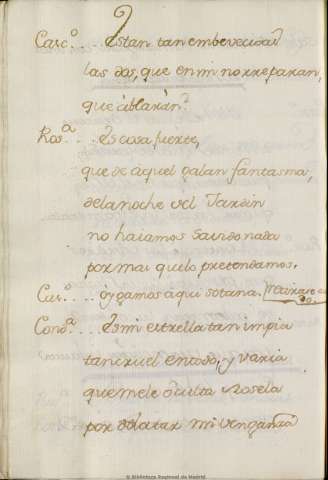 Carc.º . . Están tan embevecidas
las dos, que en mi no rreparan,
que ablarán?
Ros.ª . . Es cosa fuerte,
que de aquel galan fantasma,
de la noche del Jardin
no haiamos savido nada
por mas que lo pretendamos.
Car.º . . . oygamos aqui sotana.
Cond.ª . . . Es mi estrella tan impia
tan cruel en todo, y varia
que me le oculta Rosela
por dilatar mi venganza
© Biblioteca Regional de Madrid